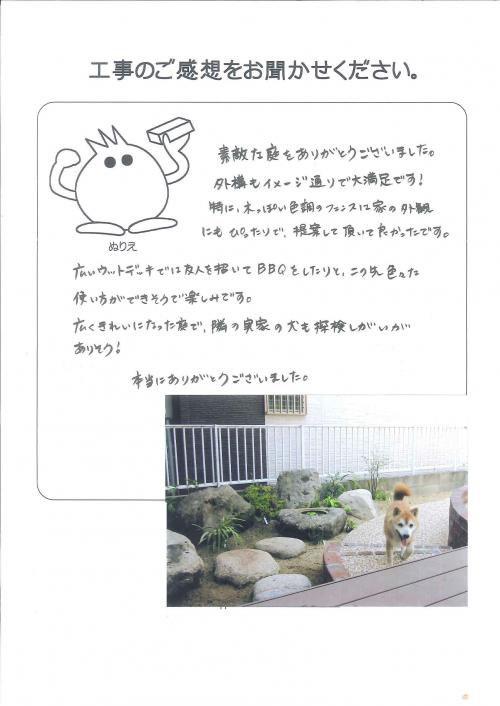 工事のご感想をお聞かせください。
素敵な庭をありがとうございました。
外構もイメージ通りで大満足です！
特に、木っぽい色調のフェンスは家の外観
にもぴったりで、提案して頂いて良かったです。
ぬりえ
広いウッドデッキでは友人を招いてBBQをしたりと、この先色々な
使い方ができそうで楽しみです。
広くきれいになった庭で、隣の実家の犬も探検しがいが
ありそう！
本当にありがとうございました。